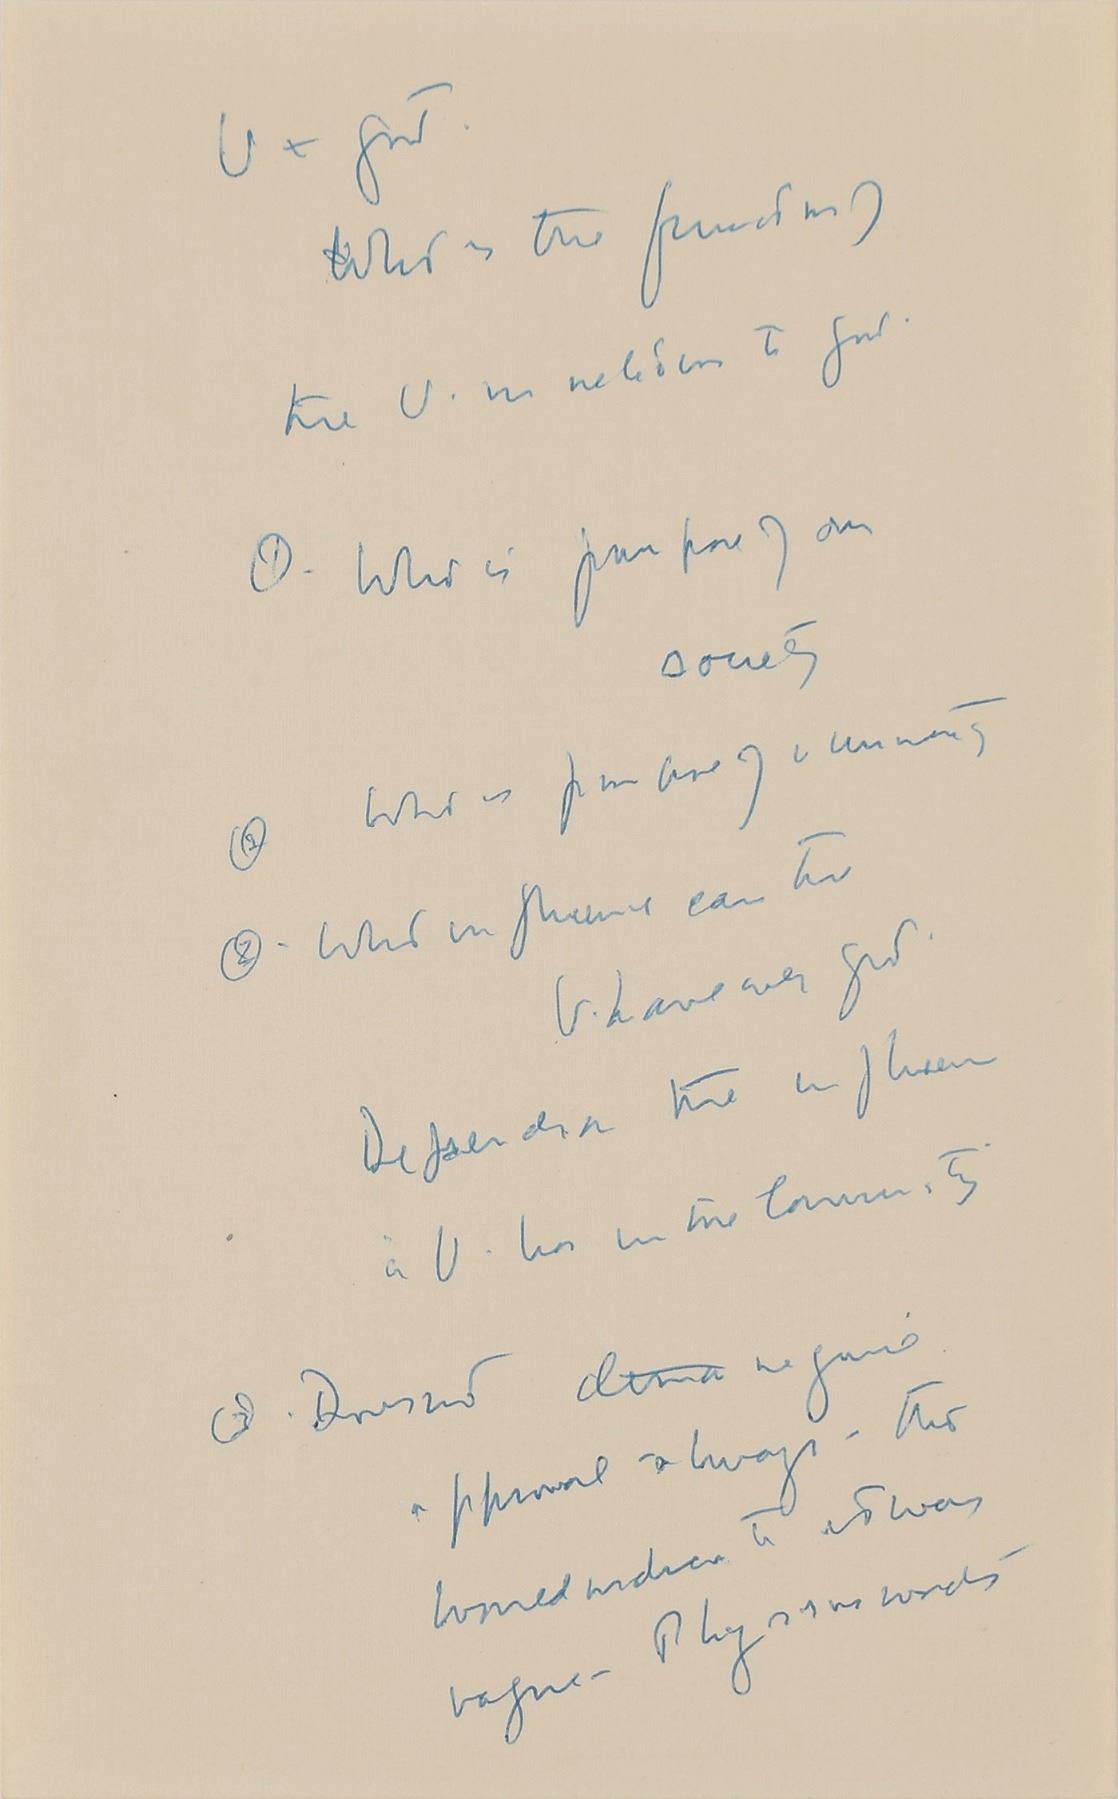 U + govt.
What is the function of
the U. in relation to govt.
① - What is purpose of our
society
② What is purpose of university
② - What influence can the
U. have over govt.
Depends on the influence
a U. has in the community
③ . Doesn't require
approval - always - this
would indicate to
vague - Physicists